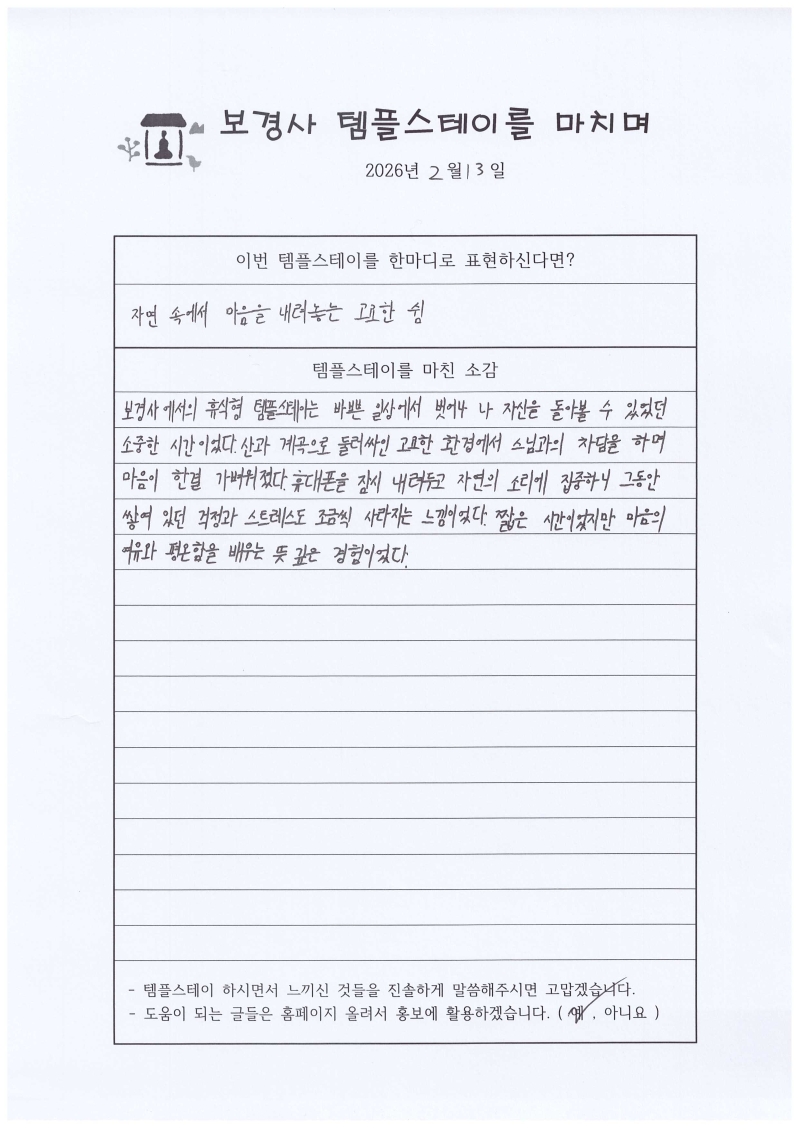 보경사 템플스테이를 마치며
2026년 2월 13일
이번 템플스테이를 한마디로 표현하신다면?
자연 속에서 마음을 내려놓는 고요한 쉼
템플스테이를 마친 소감
보경사에서의 휴식형 템플스테이는 바쁜 일상에서 벗어나 나 자신을 돌아볼 수 있었던
소중한 시간이었다. 산과 계곡으로 둘러싸인 고요한 환경에서 스님과의 차담을 하며
마음이 한결 가벼워졌다. 휴대폰을 잠시 내려두고 자연의 소리에 집중하니 그동안
쌓여 있던 걱정과 스트레스도 조금씩 사라지는 느낌이었다. 짧은 시간이었지만 마음의
여유와 평온함을 배우는 뜻 깊은 경험이었다.
- 템플스테이 하시면서 느끼신 것들을 진솔하게 말씀해주시면 고맙겠습니다.
- 도움이 되는 글들은 홈페이지 올려서 홍보에 활용하겠습니다. ( 예 , 아니요 )